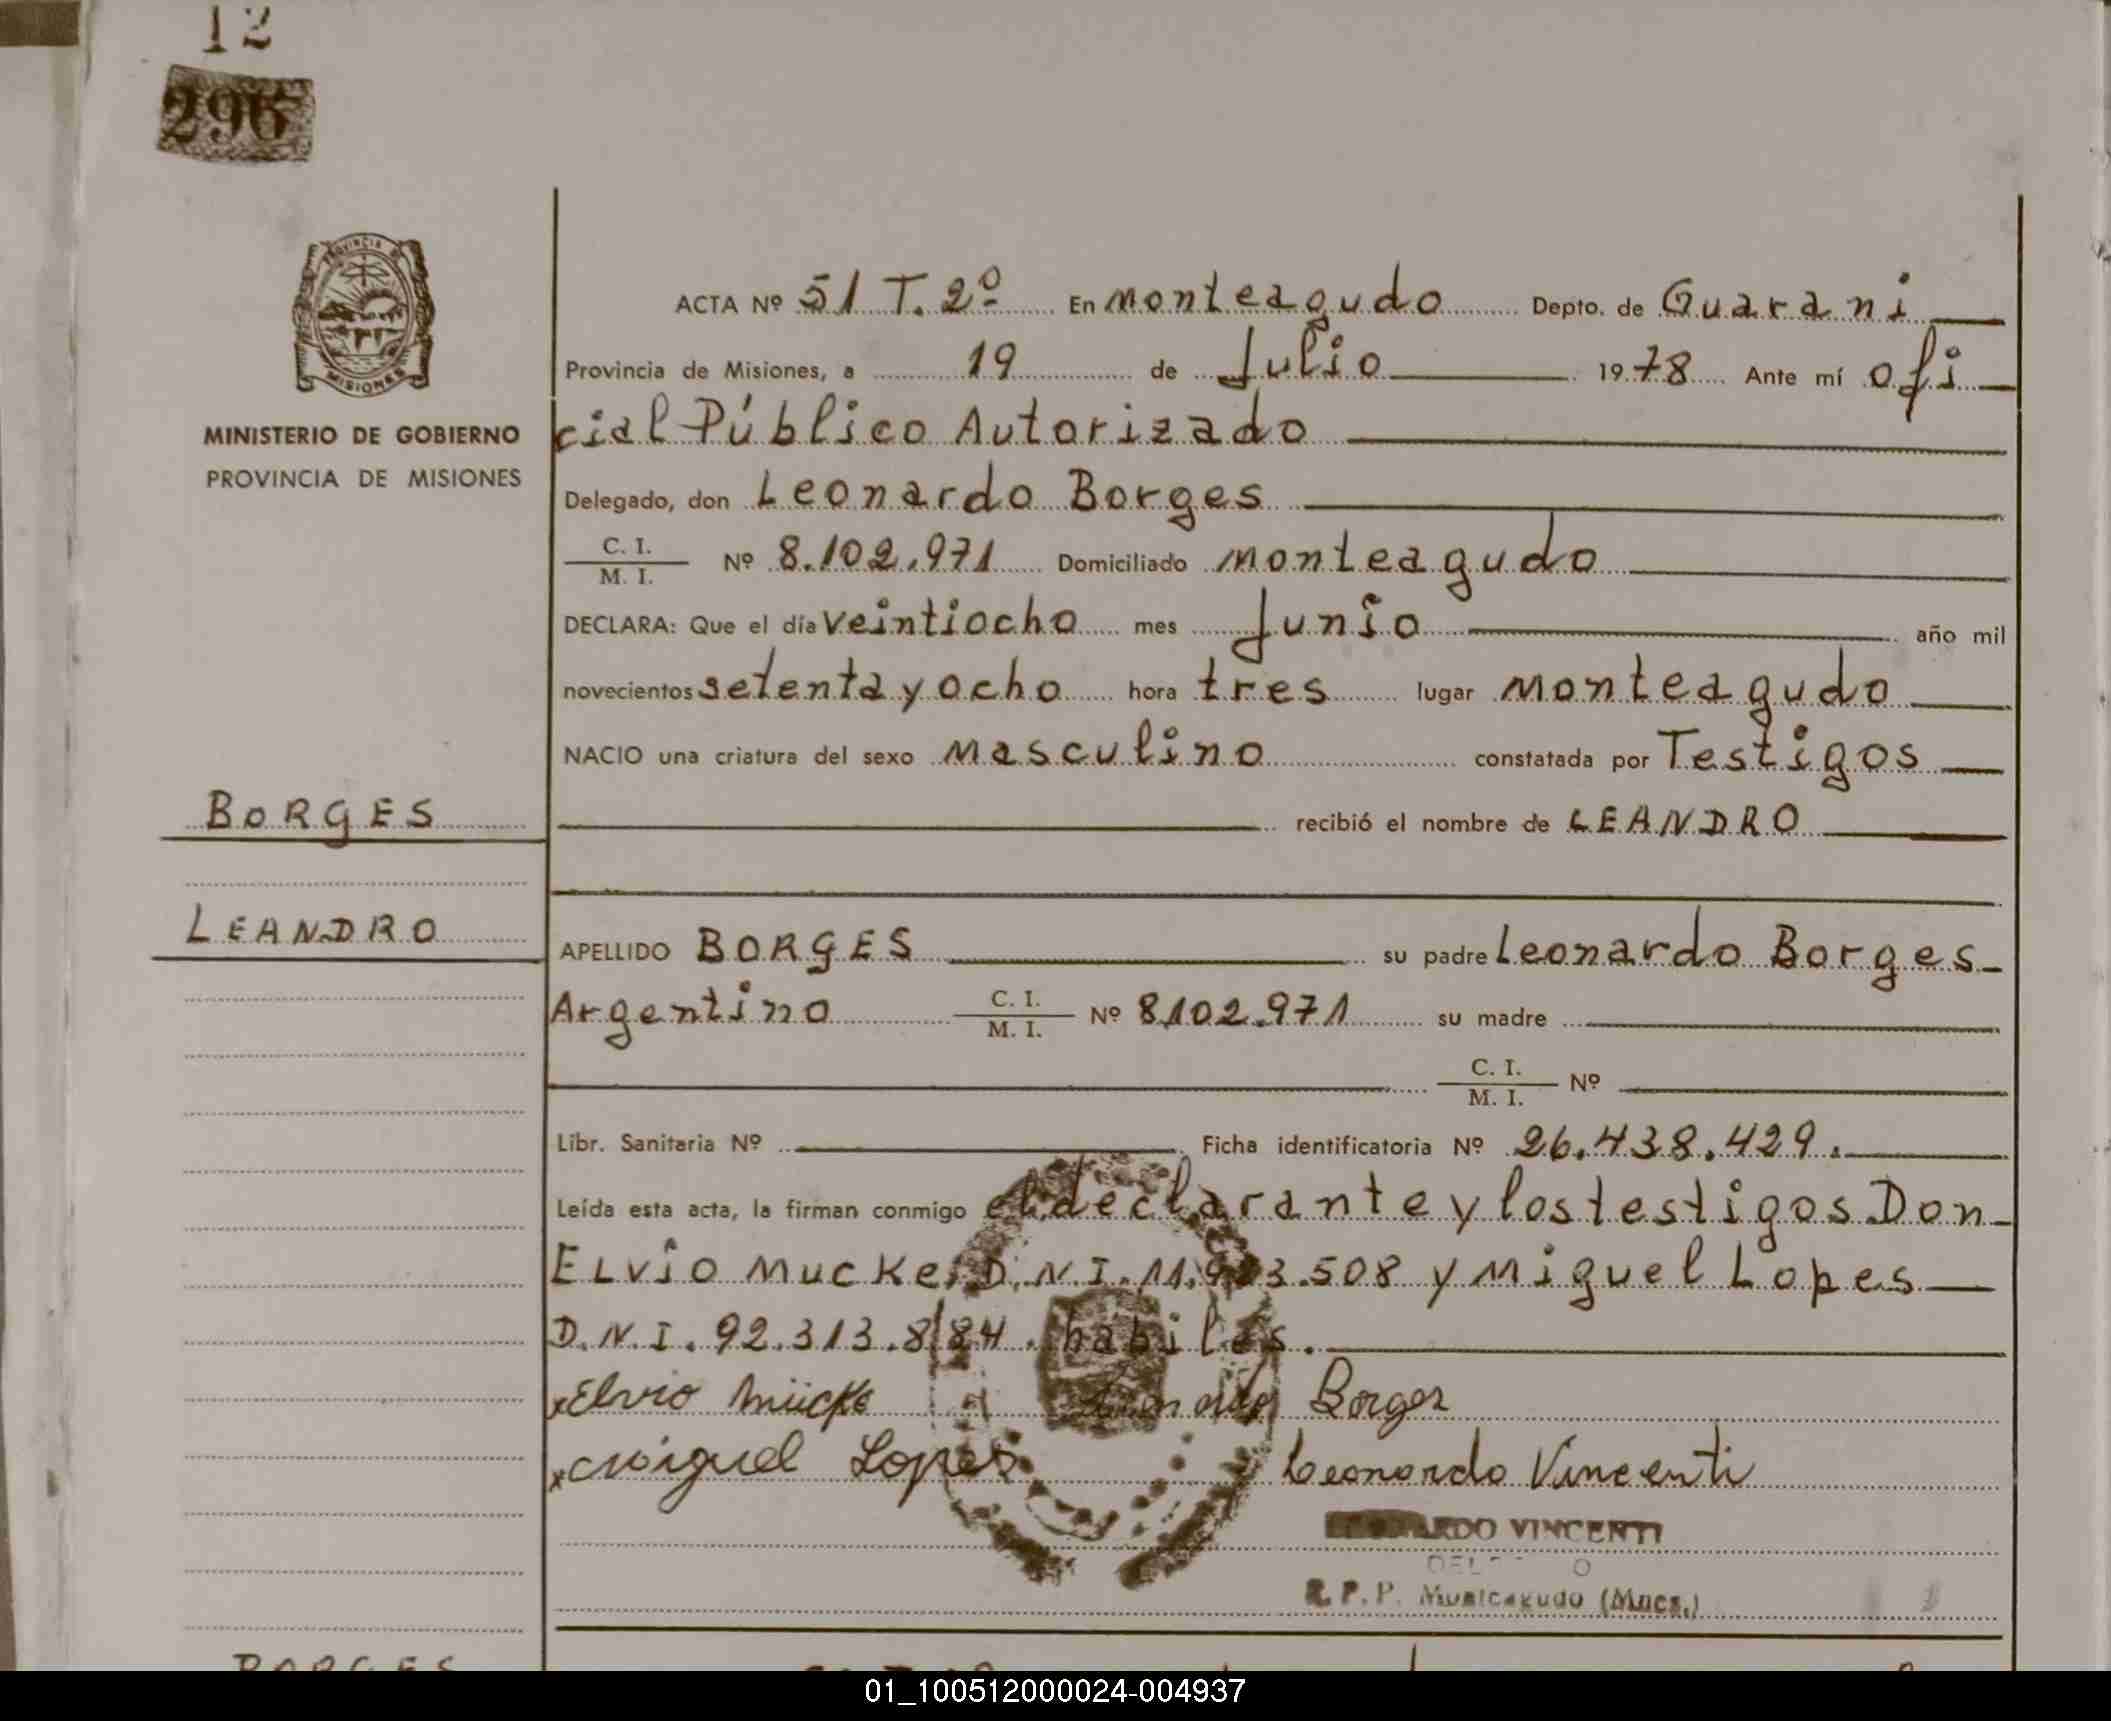 12
296
PROVINCIA DE
MISIONES
MINISTERIO DE GOBIERNO
PROVINCIA DE MISIONES
ACTA Nº 51 T. 2º En Monteagudo Depto. de Guarani
Provincia de Misiones, a 19 de Julio 1978 Ante mí ofi
cial Público Autorizado
Delegado, don Leonardo Borges
C. I.
M. I. Nº 8.102.971 Domiciliado Monteagudo
DECLARA: Que el día veintiocho mes Junio año mil
novecientos setenta y ocho hora tres lugar Monteagudo
NACIO una criatura del sexo Masculino constatada por Testigos
BORGES
recibió el nombre de LEANDRO
LEANDRO
APELLIDO BORGES su padre Leonardo Borges
Argentino C. I. M. I. Nº 8102.971 su madre
C. I.
M. I. Nº
Libr. Sanitaria Nº Ficha identificatoria Nº 26.438.429.
Leída esta acta, la firman conmigo el declarante y los testigos Don
ELVIO Mucke, D.N.I. 11. 3.508 y Miguel Lopes
D.N.I. 92.313.884. habiles.
x Elvio Mücke Borges
x Miguel Lopes Leonardo Vincenti
VINCENTI
R.P.P. (Mnes.)
BORGES
01_100512000024-004937